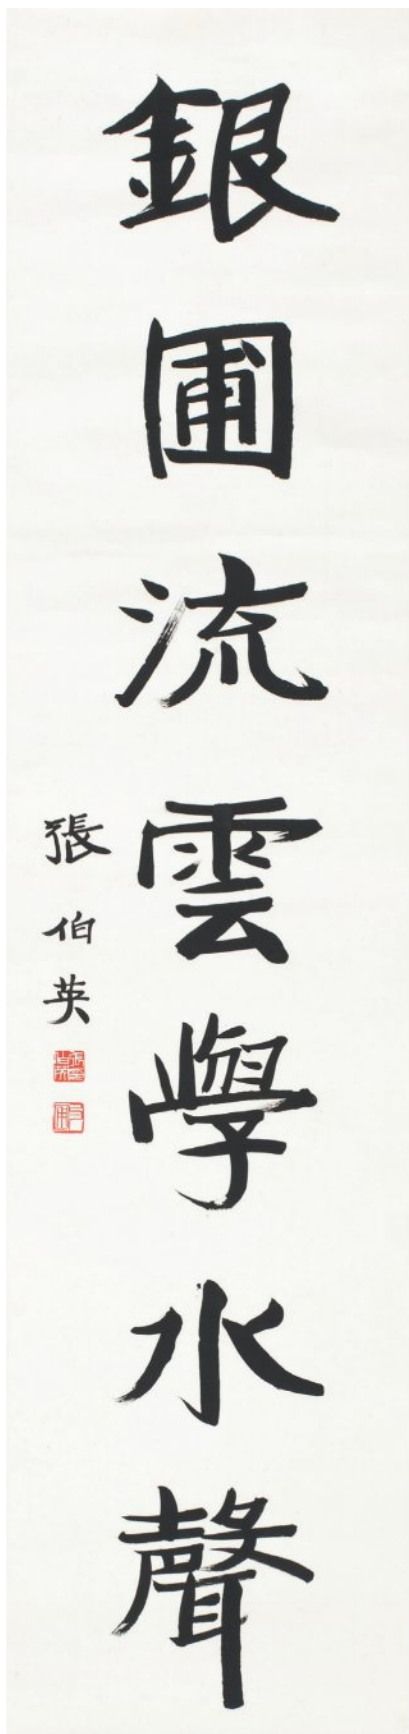 銀圃流雲學水聲
張伯英